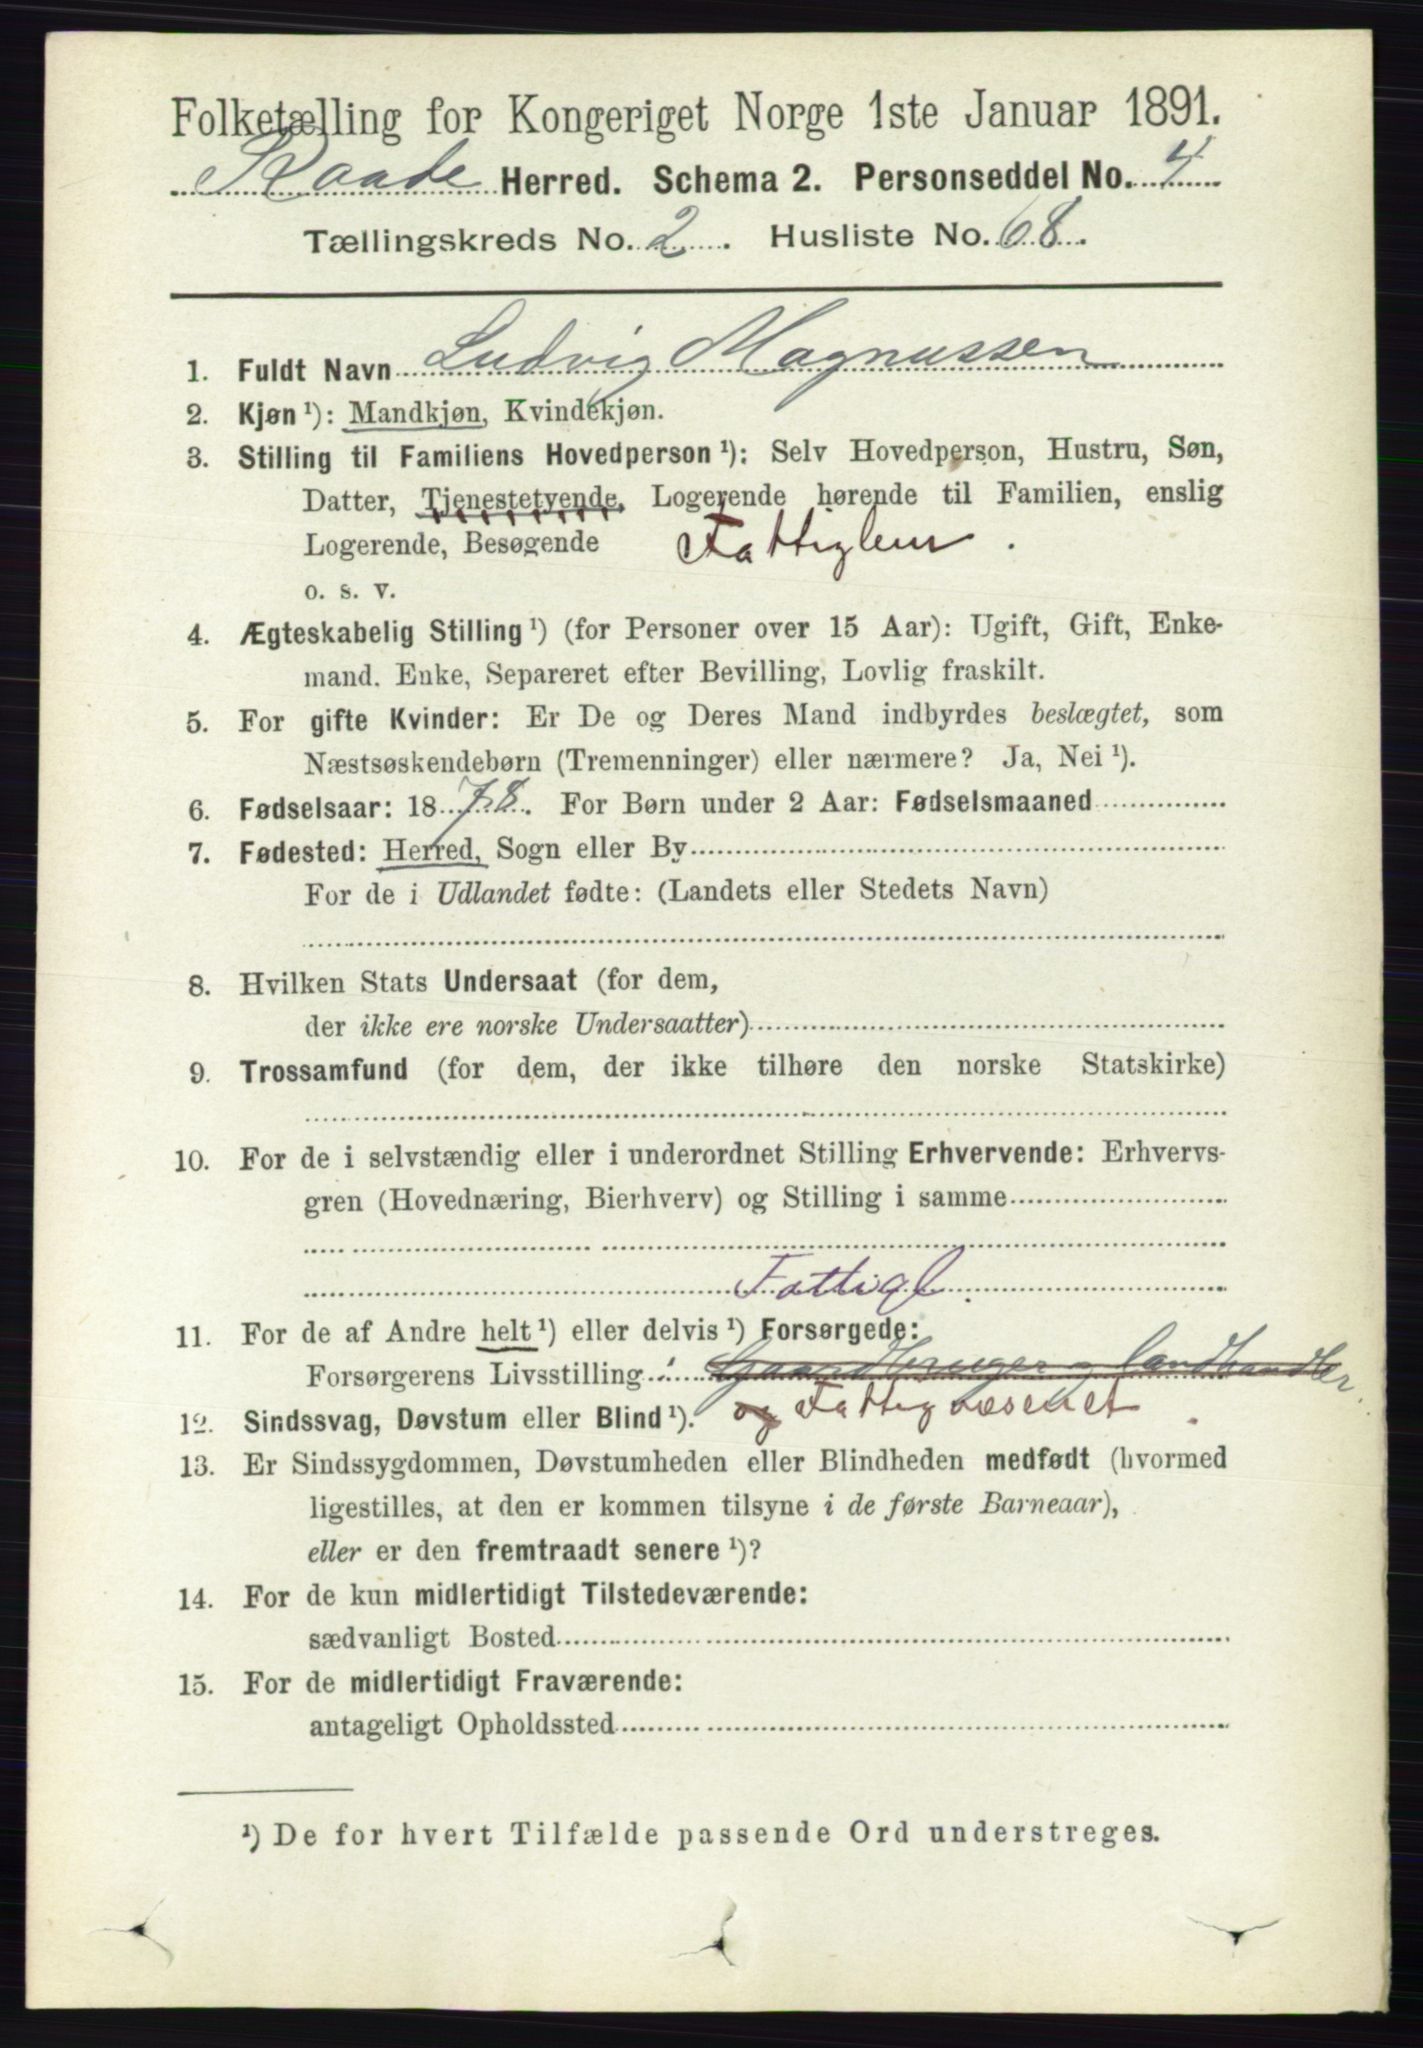 Folketælling for Kongeriget Norge 1ste Januar 1891.
Raade Herred. Schema 2. Personseddel No. 4
Tællingskreds No. 2. Husliste No. 68.
1. Fuldt Navn Ludvig Magnussen
2. Kjøn ¹): Mandkjøn, Kvindekjøn.
3. Stilling til Familiens Hovedperson ¹): Selv Hovedperson, Hustru, Søn,
Datter, Tjenestetyende, Logerende hørende til Familien, enslig
Logerende, Besøgende Fattiglem.
o. s. v.
4. Ægteskabelig Stilling ¹) (for Personer over 15 Aar): Ugift, Gift, Enke-
mand. Enke, Separeret efter Bevilling, Lovlig fraskilt.
5. For gifte Kvinder: Er De og Deres Mand indbyrdes beslægtet, som
Næstsøskendebørn (Tremenninger) eller nærmere? Ja, Nei ¹).
6. Fødselsaar: 1878. For Børn under 2 Aar: Fødselsmaaned
7. Fødested: Herred, Sogn eller By
For de i Udlandet fødte: (Landets eller Stedets Navn)
8. Hvilken Stats Undersaat (for dem,
der ikke ere norske Undersaatter)
9. Trossamfund (for dem, der ikke tilhøre den norske Statskirke)
10. For de i selvstændig eller i underordnet Stilling Erhvervende: Erhvervs-
gren (Hovednæring, Bierhverv) og Stilling i samme
Fattigl.
11. For de af Andre helt ¹) eller delvis ¹) Forsørgede:
Forsørgerens Livsstilling: Gaardbruger og landhandler.
12. Sindssvag, Døvstum eller Blind ¹). og Fattigvæsenet.
13. Er Sindssygdommen, Døvstumheden eller Blindheden medfødt (hvormed
ligestilles, at den er kommen tilsyne i de første Barneaar),
eller er den fremtraadt senere ¹)?
14. For de kun midlertidigt Tilstedeværende:
sædvanligt Bosted
15. For de midlertidigt Fraværende:
antageligt Opholdssted
¹) De for hvert Tilfælde passende Ord understreges.